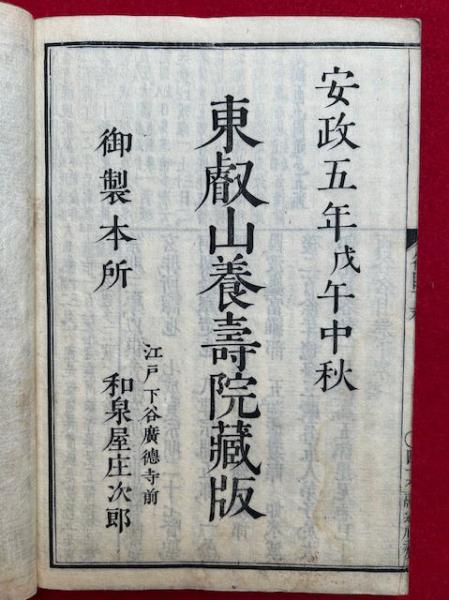 安政五年戊午中秋
東叡山養壽院藏版
御製本所
江戸下谷廣徳寺前
和泉屋庄次郎